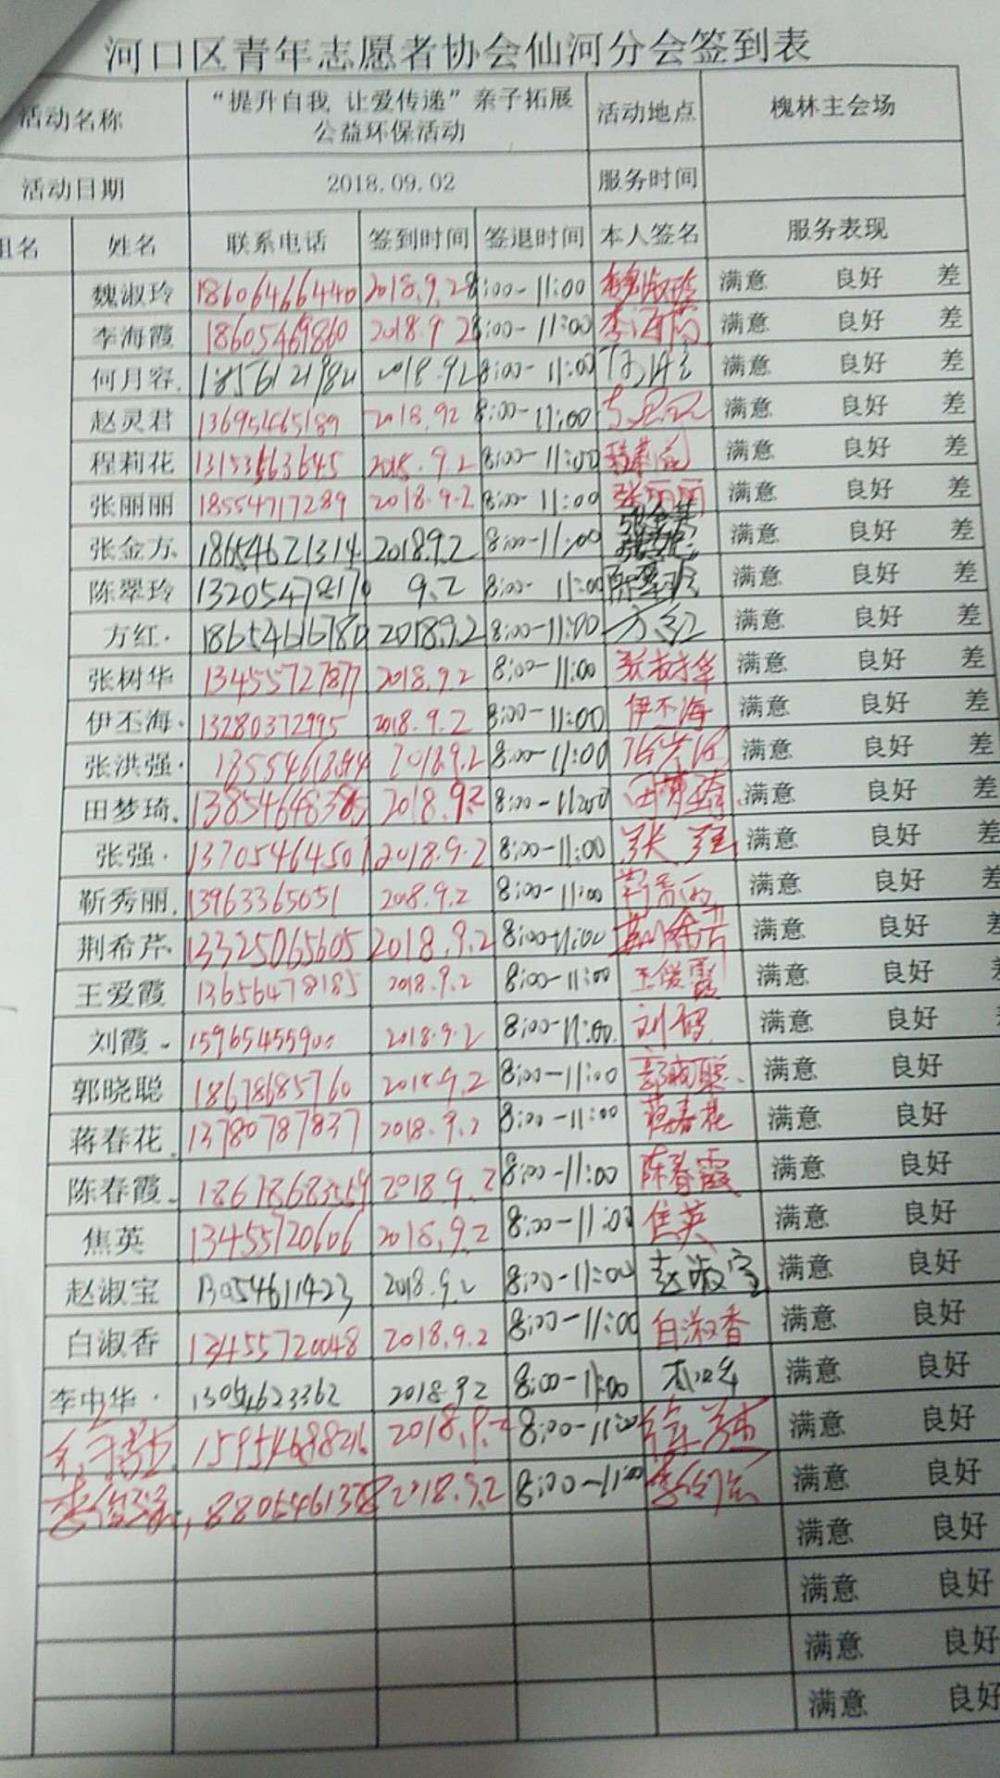 河口区青年志愿者协会仙河分会签到表
活动名称 “提升自我 让爱传递”亲子拓展公益环保活动 活动地点 槐林主会场
活动日期 2018.09.02 服务时间
组名 姓名 联系电话 签到时间 签退时间 本人签名 服务表现
魏淑玲 18606466440 2018.9.2 8:00-11:00 魏淑玲 满意 良好 差
李海霞 18605469860 2018.9.2 8:00-11:00 李海霞 满意 良好 差
何月容 2018.9.2 8:00-11:00 满意 良好 差
赵灵君 13695465189 2018.9.2 8:00-11:00 满意 良好 差
程莉花 13153463645 2018.9.2 8:00-11:00 程莉花 满意 良好 差
张丽丽 18554717289 2018.9.2 8:00-11:00 张丽丽 满意 良好 差
张金方 18654621314 2018.9.2 8:00-11:00 满意 良好 差
陈翠玲 9.2 8:00-11:00 陈翠玲 满意 良好 差
方红 2018.9.2 8:00-11:00 方红 满意 良好 差
张树华 13455727877 2018.9.2 8:00-11:00 张树华 满意 良好 差
伊丕海 13280372995 2018.9.2 8:00-11:00 伊丕海 满意 良好 差
张洪强 2018.9.2 8:00-11:00 满意 良好 差
田梦琦 2018.9.2 8:00-11:00 田梦琦 满意 良好 差
张强 13705464501 2018.9.2 8:00-11:00 张强 满意 良好 差
靳秀丽 13963365051 2018.9.2 8:00-11:00 满意 良好 差
荆希芹 13325065605 2018.9.2 8:00-11:00 荆希芹 满意 良好 差
王爱霞 13656478185 2018.9.2 8:00-11:00 王爱霞 满意 良好
刘霞 15965455900 2018.9.2 8:00-11:00 刘霞 满意 良好
郭晓聪 18678685760 2018.9.2 8:00-11:00 郭晓聪 满意 良好
蒋春花 13780787837 2018.9.2 8:00-11:00 蒋春花 满意 良好
陈春霞 2018.9.2 8:00-11:00 陈春霞 满意 良好
焦英 13455720606 2018.9.2 8:00-11:00 焦英 满意 良好
赵淑宝 13054611423 2018.9.2 8:00-11:00 赵淑宝 满意 良好
白淑香 13455720048 2018.9.2 8:00-11:00 白淑香 满意 良好
李中华 13054623362 2018.9.2 8:00-11:00 满意 良好
2018.9.2 8:00-11:00 满意 良好
2018.9.2 8:00-11:00 满意 良好
满意 良好
满意 良好
满意 良好
满意 良好